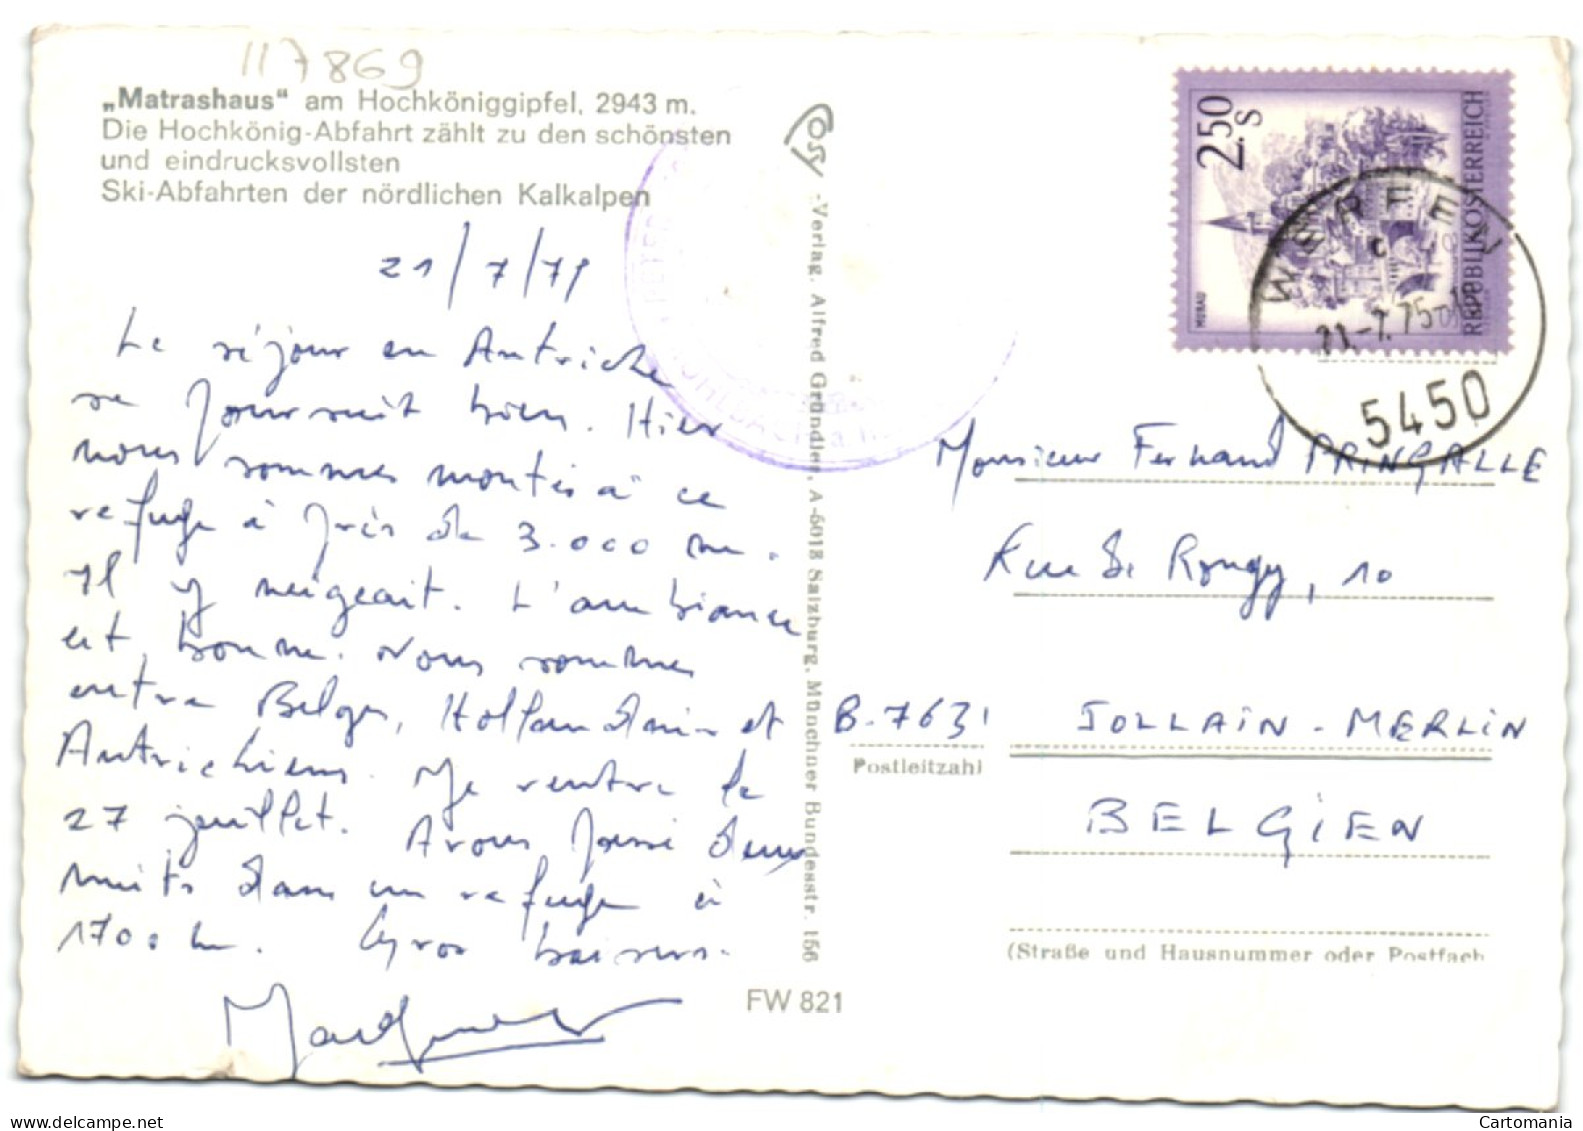 117869
„Matrashaus" am Hochköniggipfel, 2943 m.
Die Hochkönig-Abfahrt zählt zu den schönsten
und eindrucksvollsten
Ski-Abfahrten der nördlichen Kalkalpen
21/7/75
Le séjour en Autriche
se poursuit bien. Hier
nous sommes montés à ce
refuge à près de 3.000 m.
Il y neigeait. L'ambiance
est bonne. Nous sommes
entre Belges, Hollandais et
Autrichiens. Je rentre le
27 juillet. Avons passé deux
nuits dans un refuge à
1700 m. Gros baisers.
Cosy -Verlag, Alfred Gründler, A-5018 Salzburg, Münchner Bundesstr. 156
FW 821
2.50 S
REPUBLIK ÖSTERREICH
MURAU
WERFEN
c
21.-7.75
5450
Monsieur Fernand PRINGALLE
Rue de Rongy, 10
B-7631 JOLLAIN-MERLIN
Postleitzahl
BELGIEN
(Straße und Hausnummer oder Postfach
www.delcampe.net
Cartomania